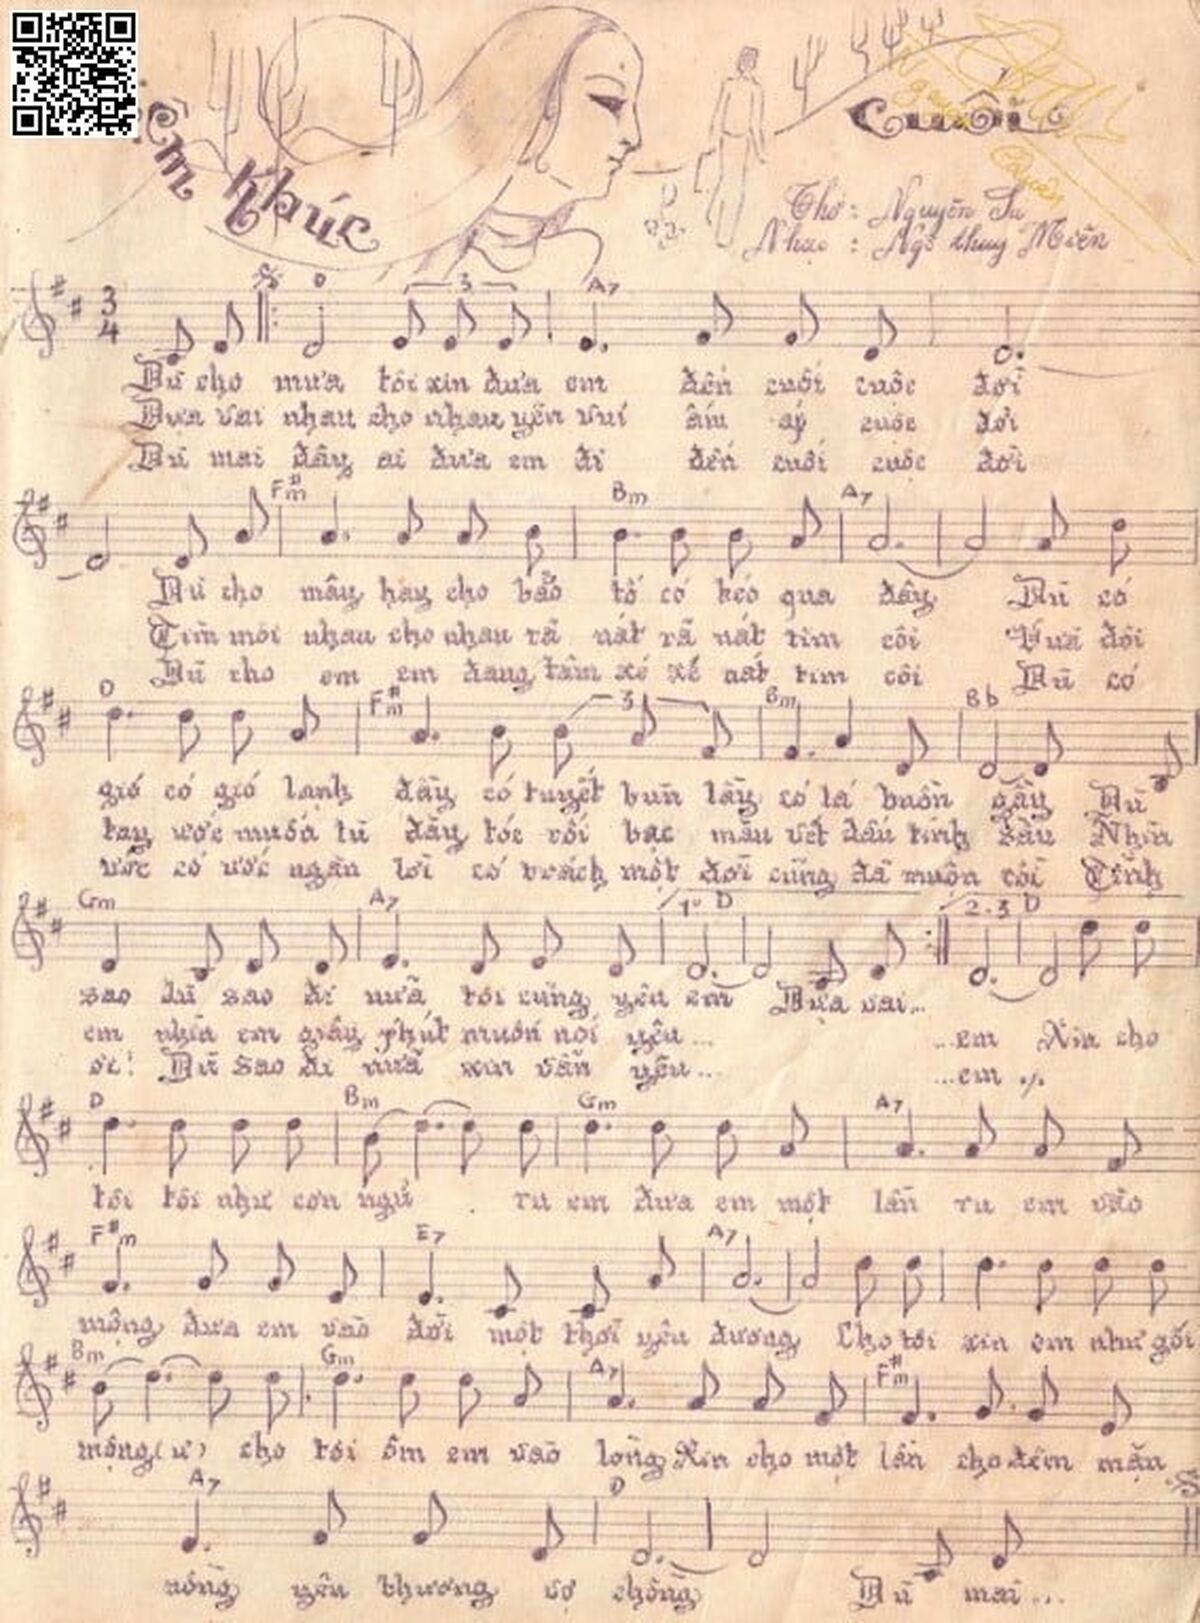 Êm khúc Cuối
Thơ : Nguyên Sa
Nhạc : Ngô thụy Miên
D 3 A7
3 4
Dù cho mưa tôi xin đưa em đến cuối cuộc đời
Dựa vai nhau cho nhau yên vui ấm áp cuộc đời
Dù mai đây ai đưa em đi đến cuối cuộc đời
F#m Bm A7
Dù cho mây hay cho bão tố có kéo qua đây Dù có
Tìm môi nhau cho nhau rã nát rã nát tim côi Vuá đôi
Dù cho em em đang tâm xé xé nát tim côi Dù có
D F#m 3 Bm Bb
gió có gió lạnh đầy có tuyết bùn lầy có lá buồn gầy Dù
tay ước muốn tù đầy tóc rối bạc mầu vết dấu tình sâu Nhìn
ước có ước ngàn lời có trách một đời cũng đã muộn rồi Tình
Gm A7 1º D 2.3 D
sao dù sao đi nữa tôi cũng yêu em Dựa vai...
em nhìn em giây phút muốn nói yêu ... ...em Xin cho
ơi! Dù sao đi nữa xin vẫn yêu... ...em ./.
D Bm Gm A7
tôi tôi như cơn ngủ ru em đưa em một lần ru em vào
F#m E7 A7
mộng đưa em vào đời một thời yêu đương Cho tôi xin em như gối
Bm Gm A7 F#m
mộng(ư) cho tôi ôm em vào lòng Xin cho một lần cho đêm mặn
A7 D
nồng yêu thương vợ chồng Dù mai ...